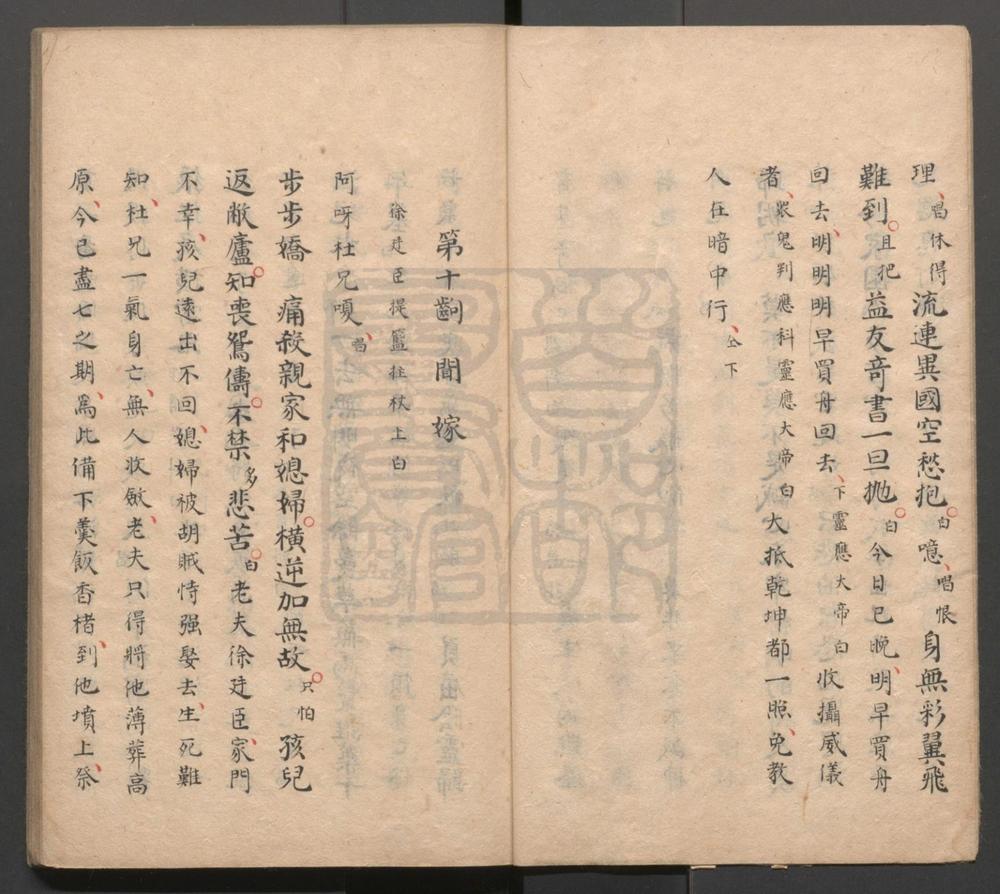 理、唱休得流連異國空愁抱。白噫、唱恨身無彩翼飛
難到。且把益友竒書一旦抛。白今日已晚、明早買舟
回去、明明明早買舟回去、下靈應大帝白收攝威儀
者、衆鬼判應科靈應大帝白大抵乾坤都一照、免教
人在暗中行、仝下
第十齣 聞嫁
徐廷臣提籃拄杖上白
阿呀杜兄嗄、唱
步步嬌 痛殺親家和媳婦。橫逆加無故。只怕孩兒
返敝廬。知喪鴛儔。不禁多悲苦。白老夫徐廷臣、家門
不幸、孩兒遠出不回、媳婦被胡賊恃强娶去、生死難
知、杜兄一氣身亡、無人收斂、老夫只得將他薄葬高
原、今已盡七之期、爲此備下羹飯香楮、到他墳上、祭